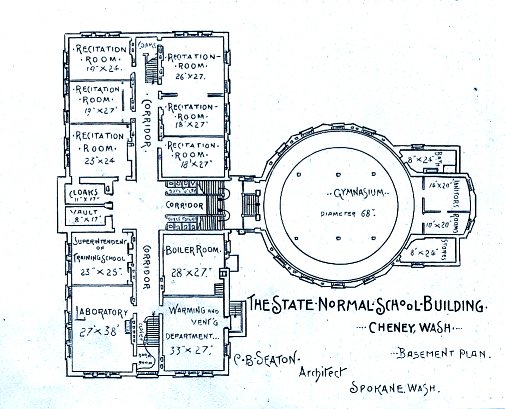 RECITATION
ROOM.
19' x 24.
CLOAKS
RECITATION
ROOM.
26' x 27.
RECITATION
ROOM.
19' x 27'
RECITATION
ROOM.
18' x 27'
CORRIDOR.
RECITATION
ROOM.
23' x 24
RECITATION
ROOM.
18' x 27'
CLOAKS
11' x 17'
VAULT
8' x 17'
CORRIDOR
GYMNASIUM.
DIAMETER 68'.
BATH
8' x 26'
16' x 20'
JANITORS
ROOMS
10' x 20'
STORES
8' x 26'
SUPERINTENDENT
OF
TRAINING SCHOOL
23' x 25'.
CORRIDOR
BOILER ROOM.
28' x 27'.
LABORATORY
27' x 38'
WARMING AND
VENT'G
DEPARTMENT...
33' x 27'.
THE STATE NORMAL SCHOOL BUILDING.
CHENEY, WASH.
BASEMENT PLAN.
C. B. SEATON.
Architect
SPOKANE, WASH.